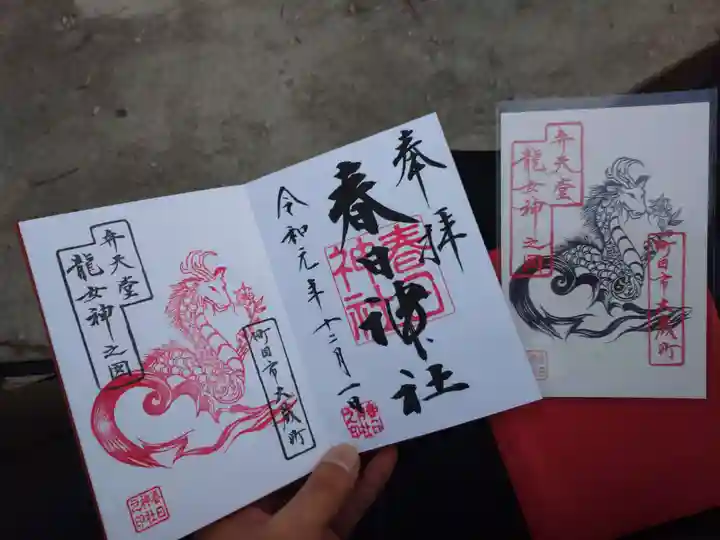 奉拝
春日神社
春日神社
令和元年十二月一日
弁天堂
龍女神之図
町田市大蔵町
春日神社之印
弁天堂
龍女神之図
町田市大蔵町